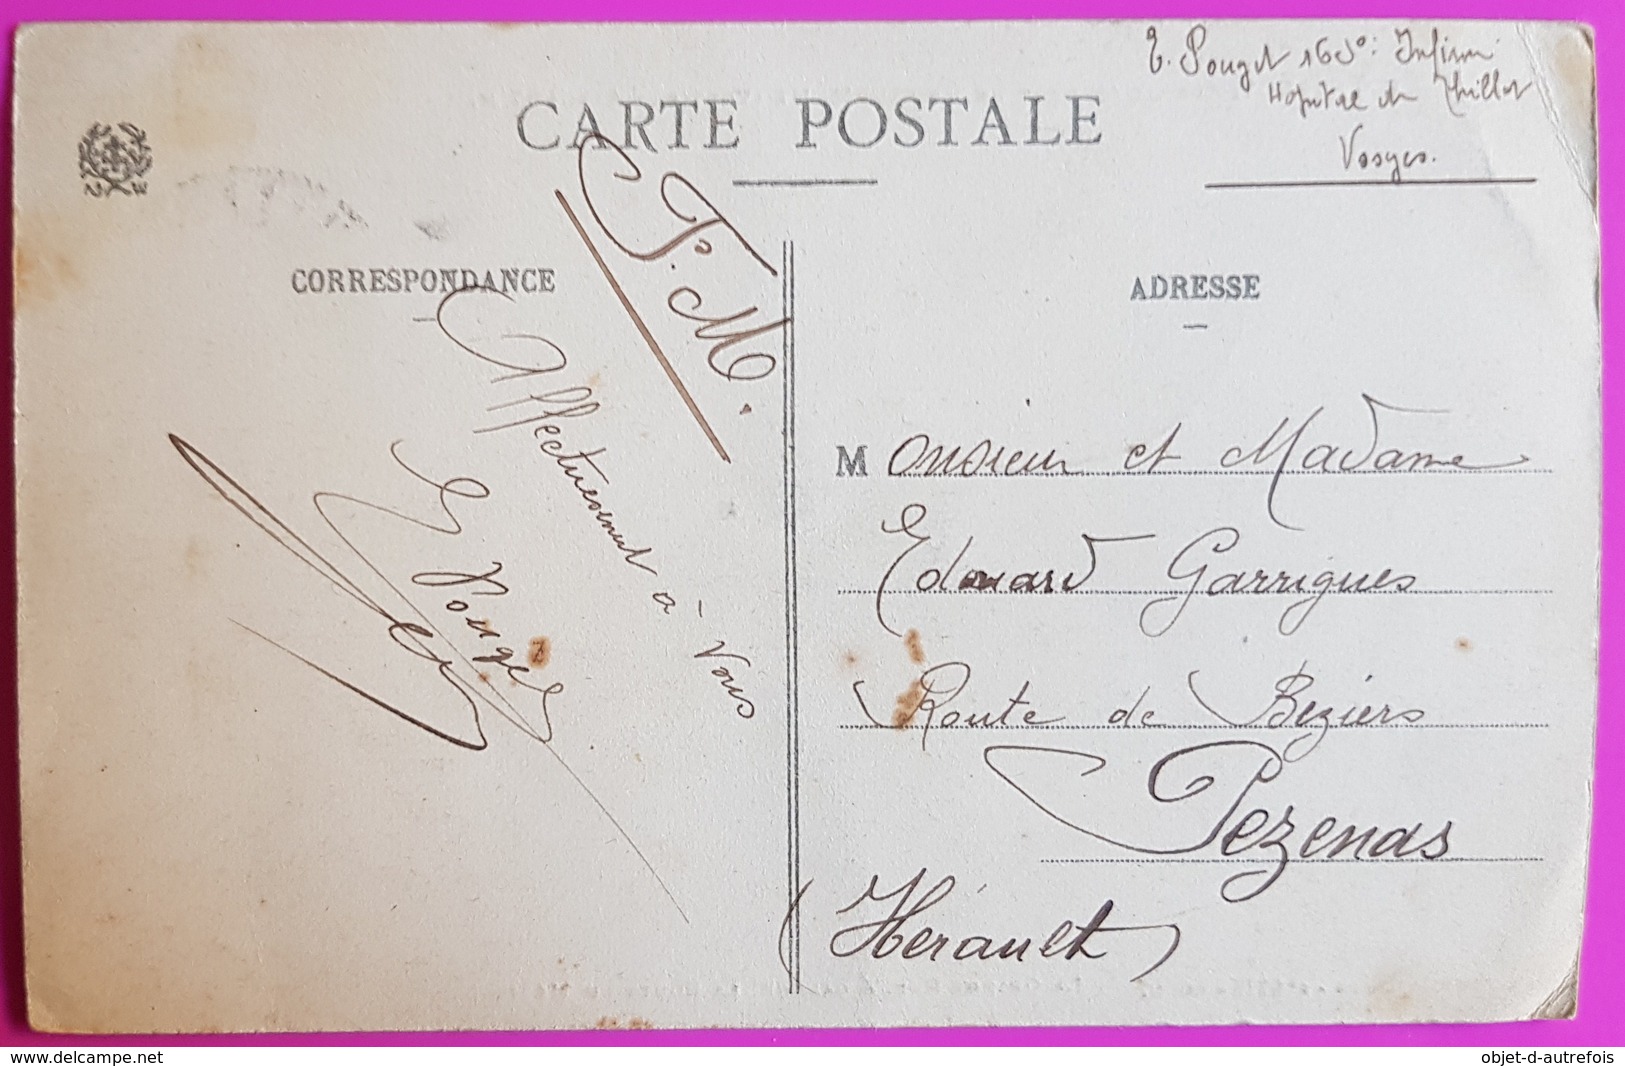 E. Pouget 16e So: Infirm
Hopital du Thillot
Vosges.
CARTE POSTALE
F. M.
CORRESPONDANCE
ADRESSE
Affectueusement à vous
E Pouget
Monsieur et Madame
Edouard Garrigues
Route de Beziers
Pezenas
(Hérault)
delcampe.net
objet-d-autrefois